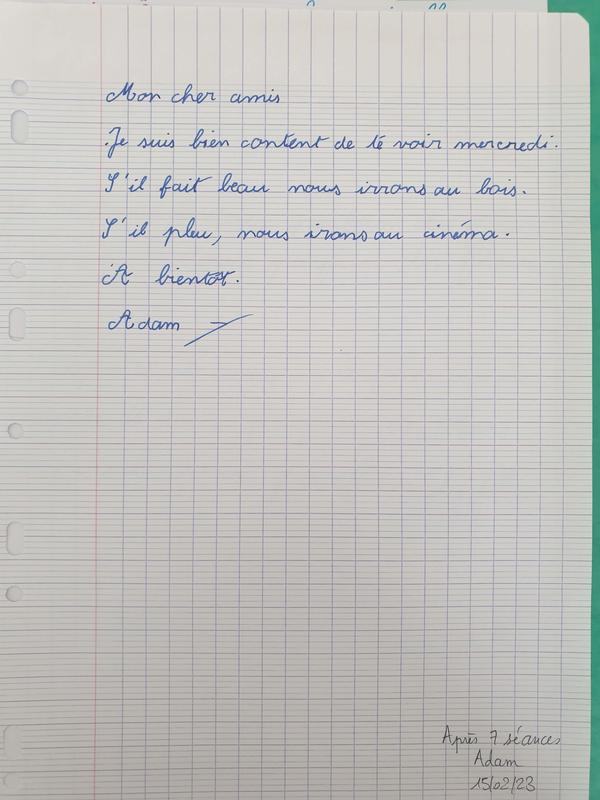 Mon cher amis
Je suis bien content de té voir mercredi.
S'il fait beau nous irrons au bois.
S'il pleu, nous irons au cinéma.
A bientôt.
Adam
Après 7 séances
Adam
15/02/23